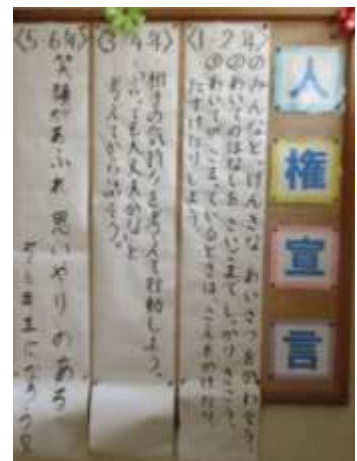 人権宣言
〈1・2年〉
①みんなと げんきな あいさつをかわそう。
②あいてのはなしを さいごまで しっかり きこう。
③あいてが こまっているときは、こえをかけたり
たすけたりしよう。
〈3・4年〉
相手の気持ちを考えて行動しよう。
言っても大丈夫かなと
考えてから話そう。
〈5・6年〉
笑顔があふれ 思いやりのある
になろう